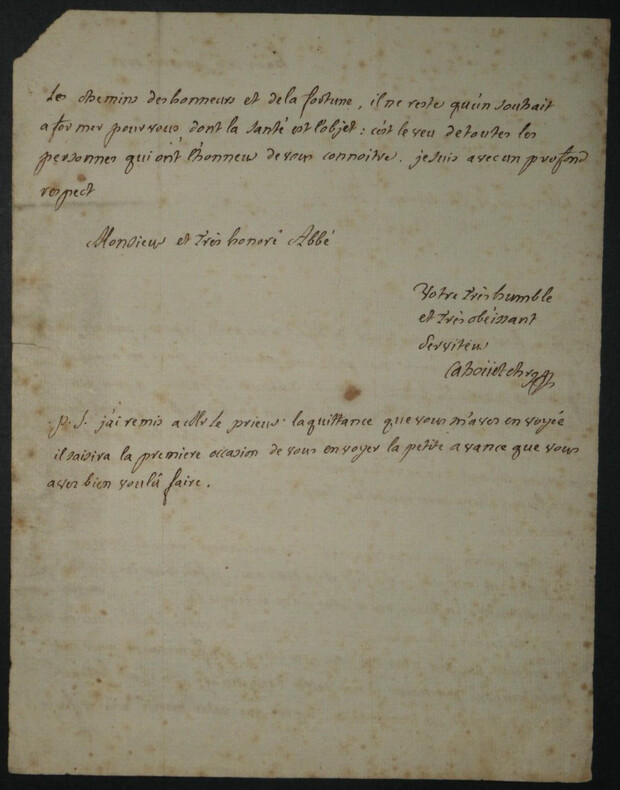 Les chemins des honneurs et de la fortune, il ne reste qu'un souhait
a former pour vous, dont la santé est l'objet : c'est le veu de toutes les
personnes qui ont l'honneur de vous connoitre. je suis avec un profond
respect
Monsieur et très honoré Abbé
Votre très humble
et très obéissant
Serviteur
P. S. j'ai remis a Mr le prieur la quittance que vous m'aves envoyée
il saisira la premiere occasion de vous envoyer la petite avance que vous
aves bien voulû faire.